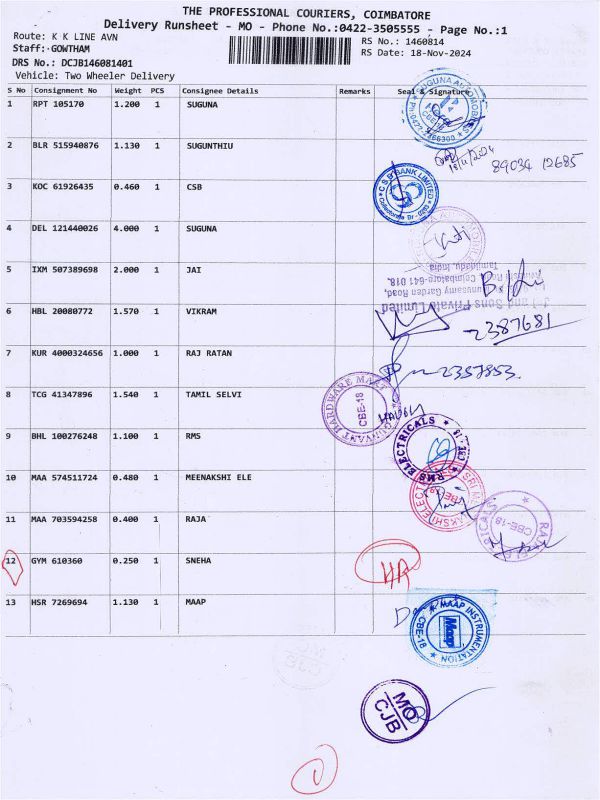 THE PROFESSIONAL COURIERS, COIMBATORE
Delivery Runsheet - MO - Phone No.:0422-3505555 - Page No.:1
Route: K K LINE AVN
RS No.: 1460814
Staff: GOWTHAM
RS Date: 18-Nov-2024
DRS No.: DCJB146081401
Vehicle: Two Wheeler Delivery
S No Consignment No Weight PCS Consignee Details Remarks Seal & Signature
1 RPT 105170 1.200 1 SUGUNA
2 BLR 515940876 1.130 1 SUGUNTHIU
18/11/2024 89034 12685
3 KOC 61926435 0.460 1 CSB
CSB BANK LIMITED
4 DEL 121440026 4.000 1 SUGUNA
5 IXM 507389698 2.000 1 JAI
Coimbatore-641 018.
Tamilnadu, India.
and Sons Private Limited
6 HBL 20080772 1.570 1 VIKRAM
2387681
7 KUR 4000324656 1.000 1 RAJ RATAN
2357853
8 TCG 41347896 1.540 1 TAMIL SELVI
GUNVANT HARDWARE MART
CBE-18
9 BHL 100276248 1.100 1 RMS
RMS ELECTRICALS
CBE-18
10 MAA 574511724 0.480 1 MEENAKSHI ELE
11 MAA 703594258 0.400 1 RAJA
CBE-18
12 GYM 610360 0.250 1 SNEHA
13 HSR 7269694 1.130 1 MAAP
MAAP INSTRUMENTATION
Maap
CBE-18
MO
CJB